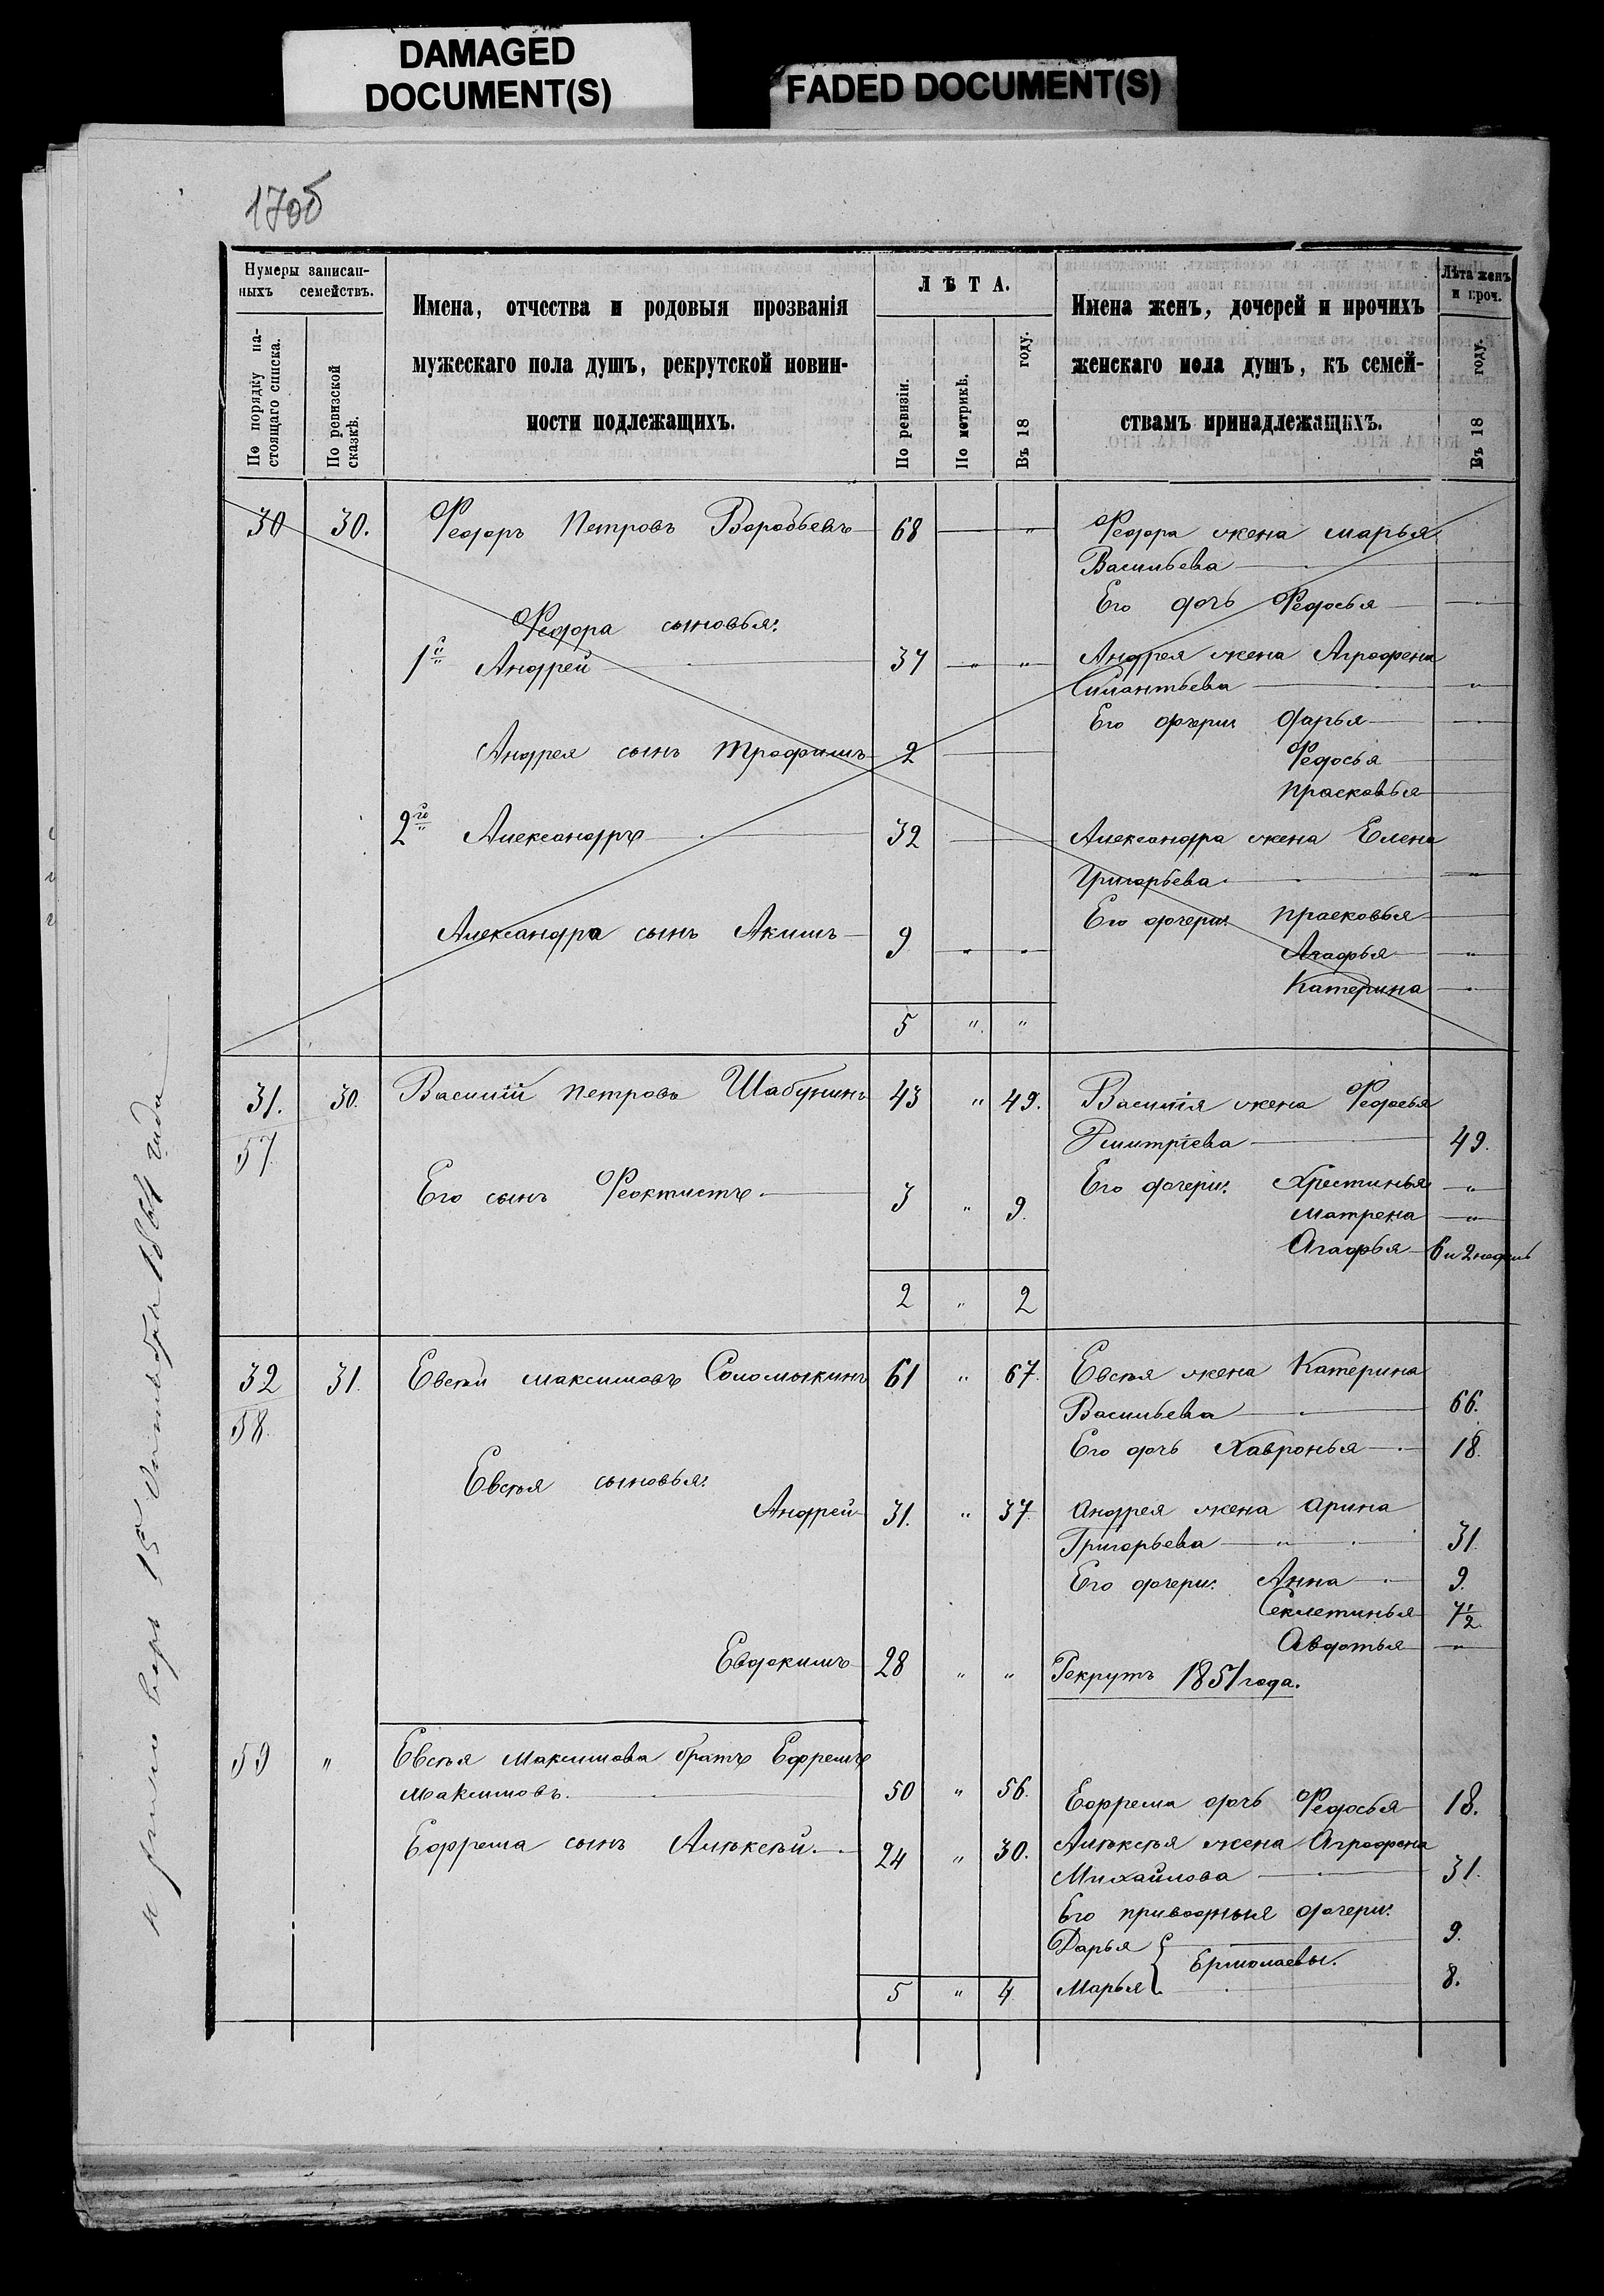 DAMAGED
DOCUMENT(S)
FADED DOCUMENT(S)
170об
Нумеры записан-
ныхъ семействъ.
По порядку на-
стоящаго списка.
По ревизской
сказкѣ.
Имена, отчества и родовыя прозванія
мужескаго пола душъ, рекрутской повин-
ности подлежащихъ.
ЛѢТА.
По ревизіи.
По метрикѣ.
Въ 18 году.
Имена женъ, дочерей и прочихъ
женскаго пола душъ, къ семей-
ствамъ принадлежащихъ.
Лѣта женъ
и проч.
Въ 18 году.
30 30. Федоръ Петровъ Воробьевъ 68 — " Федора жена Марья
Васильева
Его дочь Федосья
Федора сыновья:
1й Андрей 37 " " Андрея жена Аграфена
Силантьева "
Его дочери: Дарья
Андрея сынъ Трофимъ 2 Федосья
Прасковья
2го Александръ 32 Александра жена Елена
Григорьева "
Его дочери: Прасковья
Александра сынъ Акимъ 9 " " Агафья "
Катерина "
5 " "
31. 30. Василій Петровъ Шабунинъ 43 " 49. Василія жена Федосья
57 Дмитріева 49.
Его сынъ Феоктистъ 3 " 9. Его дочери: Хрестинья "
Матрена "
Агафья 6 и 2 недель
2 " 2
32 31. Евсѣй Максимовъ Соломыкинъ 61 " 67. Евсѣя жена Катерина
58. Васильева 66.
Его дочь Хавронья 18.
Евсѣя сыновья:
Андрей 31. " 37. Андрея жена Арина
Григорьева 31.
Его дочери: Анна 9.
Секлетинья 7½
Авдотья "
Евдокимъ 28 " " Рекрутъ 1851 года.
59 " Евсѣя Максимова братъ Ефремъ
Максимовъ. 50 " 56. Ефрема дочь Федосья 18.
Ефрема сынъ Алѣксѣй. 24 " 30. Алѣксѣя жена Аграфена
Михайлова 31.
Его приводныя дочери:
Дарья 9.
Ермолаевы.
Марья 8.
5 " 4
15 1864 года